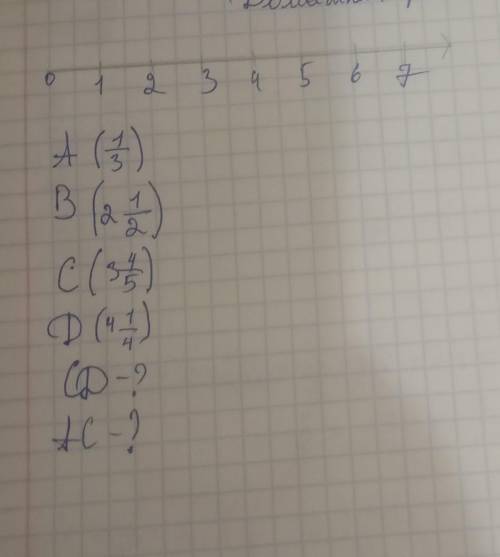 0 1 2 3 4 5 6 7
A (1/3)
B (2 1/2)
C (3 4/5)
D (4 1/4)
CD - ?
AC - ?